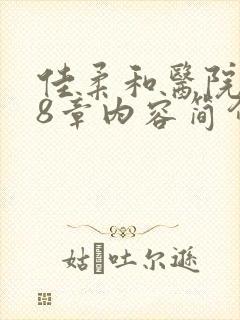 佳柔和醫院
8章内容简介
姑 吐尔逊